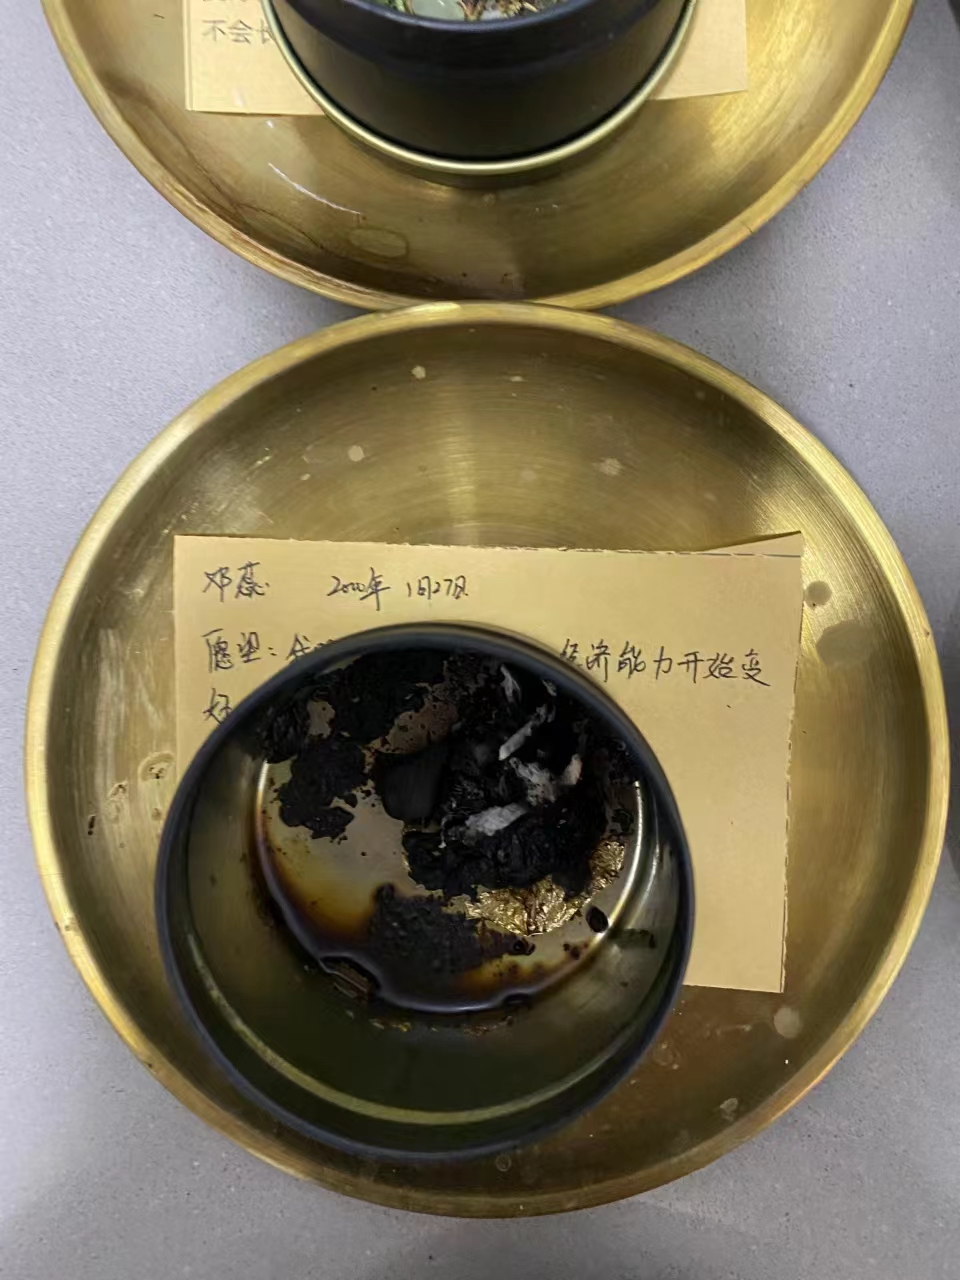 不会长
邓蕊 2000年 1月27日
愿望：经济能力开始变
好